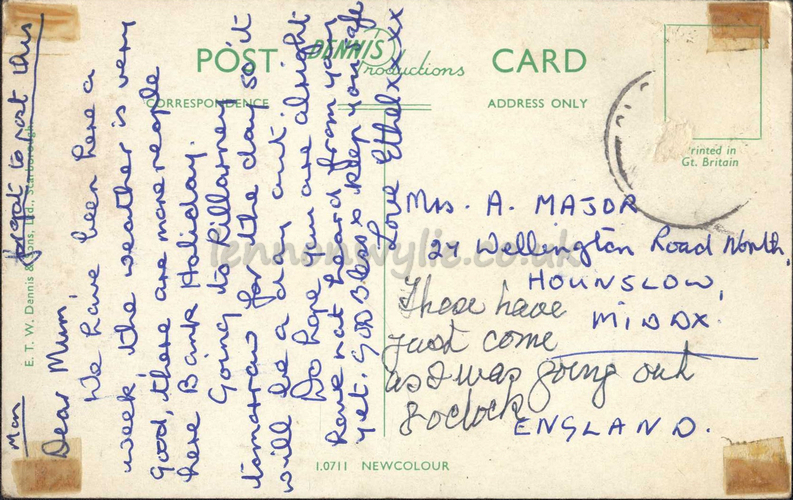 POST CARD
DENNIS
Productions
CORRESPONDENCE
ADDRESS ONLY
Printed in
Gt. Britain
E. T. W. Dennis & Sons, Ltd., Scarborough.
Mon
forgot to post this
Dear Mum,
We have been here a
week, the weather is very
good, there are more people
here Bank Holiday.
Going to Killarney
tomorrow for the day so it
will be a day out.
Do hope you are alright
have not heard from you
yet. GOD Bless & keep you safe
Love Ethel xxxxx
Mrs. A. MAJOR
27 Wellington Road North,
HOUNSLOW,
MIDDX.
ENGLAND.
These have
just come
as I was going out
8 oclock
1.0711 NEWCOLOUR
lennonwylie.co.uk